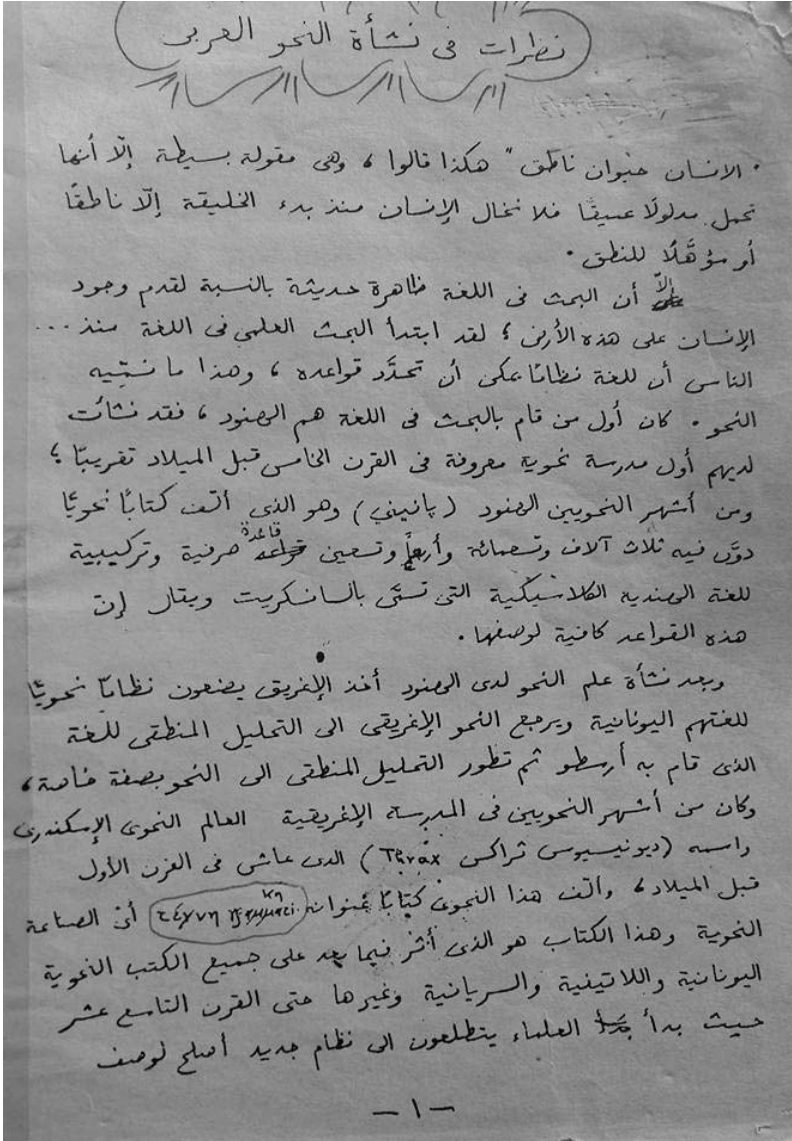 نظرات فى نشأة النحو العربى
" الانسان حيوان ناطق " هكذا قالوا ، وهى مقولة بسيطة إلّا أنها
تحمل مدلولًا عميقًا فلا نخال الإنسان منذ بدء الخليقة إلّا ناطقًا
أو مؤهَّلًا للنطق .
إلّا أن البحث فى اللغة ظاهرة حديثة بالنسبة لقدم وجود
الإنسان على هذه الأرض ؛ لقد ابتدأ البحث العلمى فى اللغة منذ ...
الناس أن للغة نظامًا يمكن أن تحدَّد قواعده ، وهذا ما نسمّيه
النحو . كان أول من قام بالبحث فى اللغة هم الهنود ، فقد نشأت
لديهم أول مدرسة نحوية معروفة فى القرن الخامس قبل الميلاد تقريبًا ؛
ومن أشهر النحويين الهنود (پانيني) وهو الذى ألّف كتابًا نحويًا
دوَّن فيه ثلاث آلاف وتسعمائة وأربعاً وتسعين قاعدة صرفية وتركيبية
للغة الهنديه الكلاسيكية التى تسمَّى بالسانسكريت ويقال إن
هذه القواعد كافية لوصفها .
وبعد نشأة علم النحو لدى الهنود أخذ الإغريق يضعون نظامًا نحويًا
للغتهم اليونانية ويرجع النحو الإغريقى الى التحليل المنطقى للغة
الذى قام به أرسطو ثم تطور التحليل المنطقى الى النحو بصفة خاصة ،
وكان من أشهر النحويين فى المدرسة الإغريقية العالم النحوى الإسكندرى
واسمه (ديونيسيوس ثراكس Thrax) الذى عاش فى القرن الأول
قبل الميلاد ، وألّف هذا النحوى كتابًا عنوانه أى الصناعة
النحوية وهذا الكتاب هو الذى أثر فيما بعد على جميع الكتب النحوية
اليونانية واللاتينية والسريانية وغيرها حتى القرن التاسع عشر
حيث بدأ العلماء يتطلعون الى نظام جديد أصلح لوصف
- ١ -